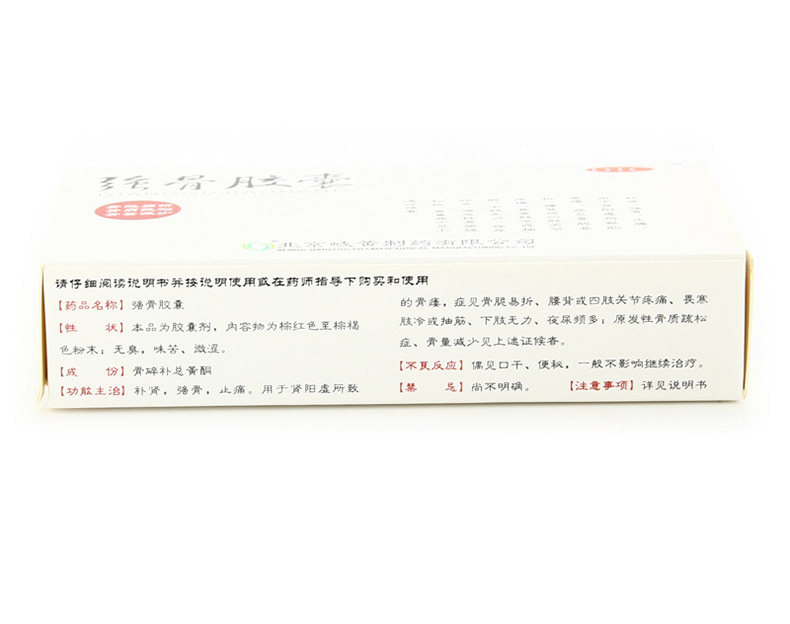 强骨胶囊
北京岐黄制药有限公司
请仔细阅读说明书并按说明使用或在药师指导下购买和使用
【药品名称】强骨胶囊
【性 状】本品为胶囊剂，内容物为棕红色至棕褐
色粉末；无臭，味苦、微涩。
【成 份】骨碎补总黄酮
【功能主治】补肾，强骨，止痛。用于肾阳虚所致
的骨痿，症见骨脆易折、腰背或四肢关节疼痛、畏寒
肢冷或抽筋、下肢无力、夜尿频多；原发性骨质疏松
症、骨量减少见上述证候者。
【不良反应】偶见口干、便秘，一般不影响继续治疗。
【禁 忌】尚不明确。 【注意事项】详见说明书